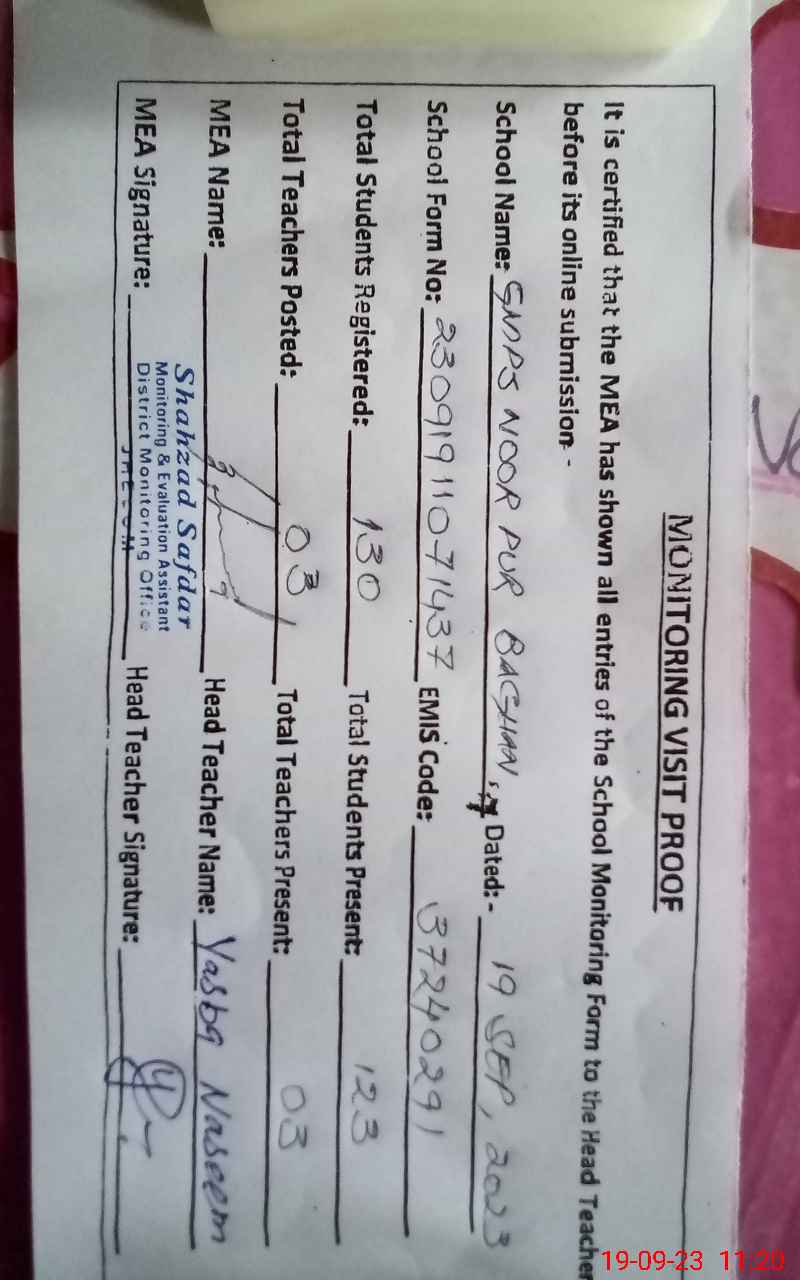 MONITORING VISIT PROOF
It is certified that the MEA has shown all entries of the School Monitoring Form to the Head Teacher
before its online submission -
School Name: GMPS NOOR PUR BAGHAN, Dated:- 19 SEP, 2023
School Form No: 23091911071437 EMIS Code: 37240291
Total Students Registered: 130 Total Students Present: 123
Total Teachers Posted: 03 Total Teachers Present: 03
MEA Name: Head Teacher Name: Yasba Naseem
Shahzad Safdar
Monitoring & Evaluation Assistant
District Monitoring Office
JHELUM
MEA Signature: Head Teacher Signature:
19-09-23 11:20